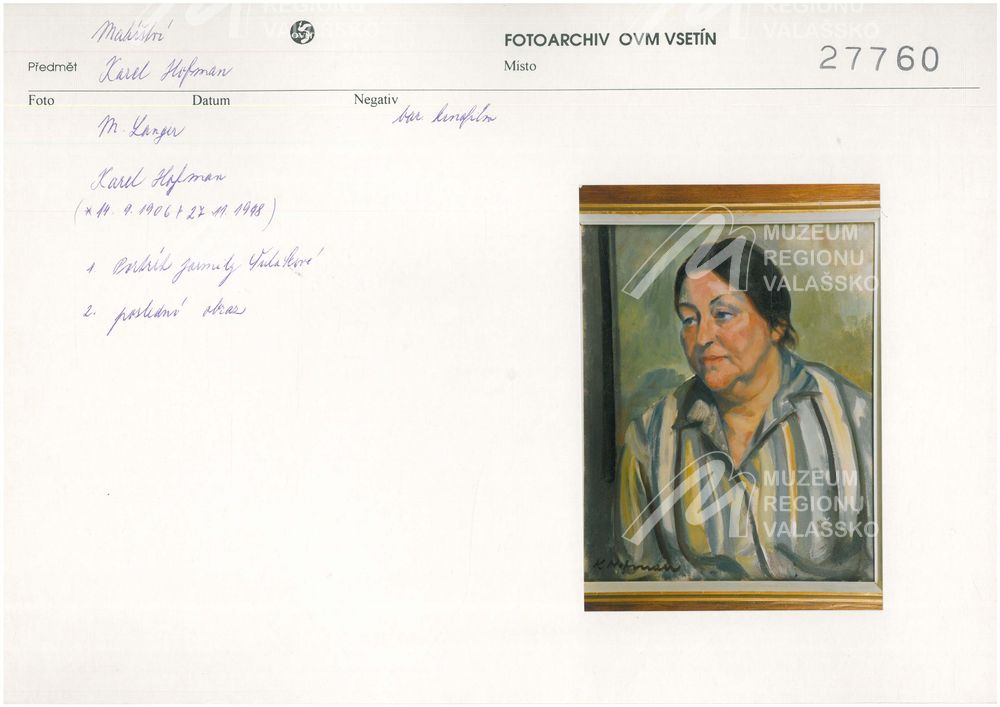 Malířství
OVM
FOTOARCHIV OVM VSETÍN
27760
Předmět Karel Hofman
Místo
Foto Datum Negativ
M. Langer bar. kinofilm
Karel Hofman
(* 14. 9. 1906 † 27. 11. 1998)
1. Portrét Jarmily
2. poslední obraz
K Hofman
MUZEUM
REGIONU
VALAŠSKO
MUZEUM
REGIONU
VALAŠSKO
REGIONU
VALAŠSKO
REGIONU
VALAŠSKO